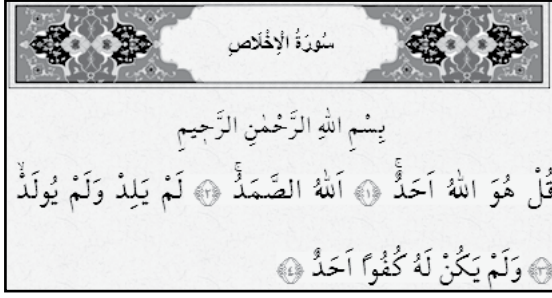 سُورَةُ الْاِخْلَاصِ
بِسْمِ اللهِ الرَّحْمٰنِ الرَّح۪يمِ
قُلْ هُوَ اللهُ اَحَدٌۚ ﴿١﴾ اَللهُ الصَّمَدُۚ ﴿٢﴾ لَمْ يَلِدْ وَلَمْ يُولَدْۙ
﴿٣﴾ وَلَمْ يَكُنْ لَهُ كُفُوًا اَحَدٌ ﴿٤﴾